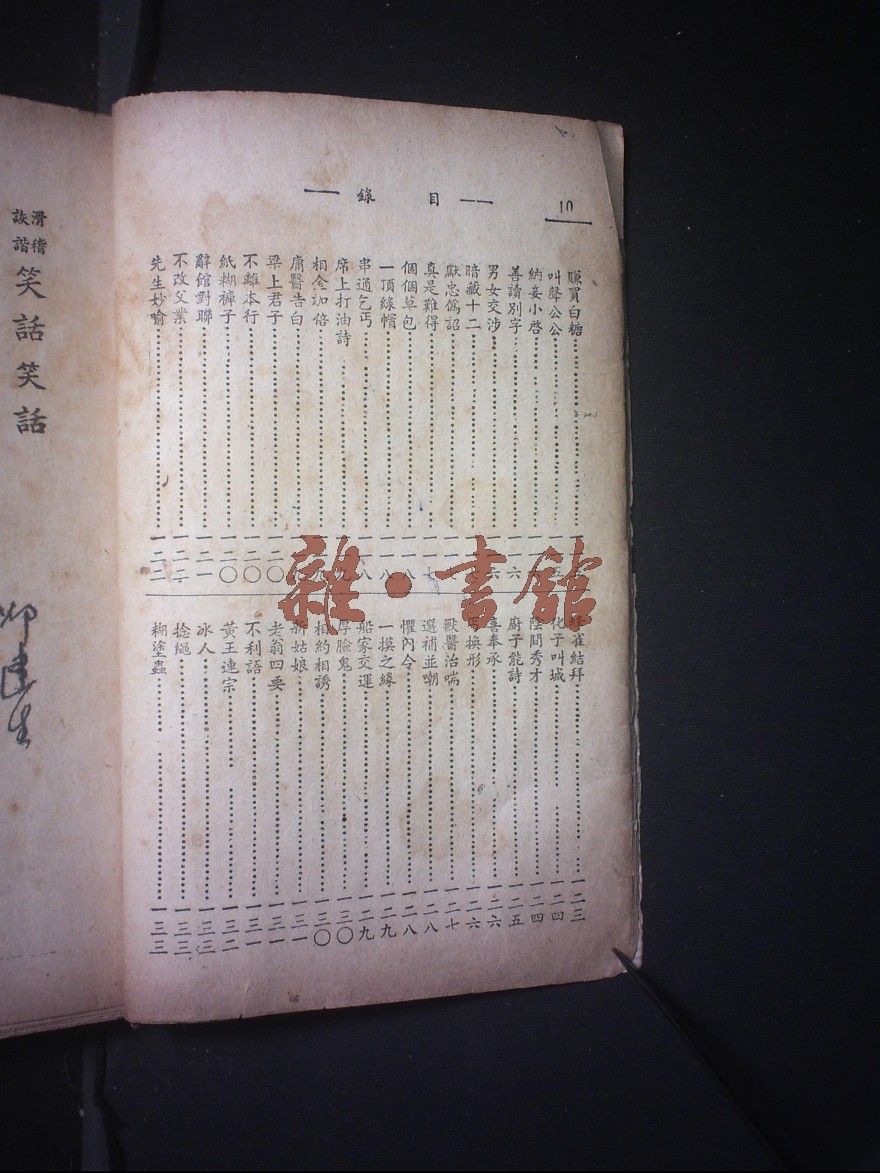 10
目錄
賺買白糖
叫聲公公
納妾小啓
善讀別字 六
男女交涉 六
暗藏十二
獻忠僞詔
真是難得 七
個個草包 一一八
一頂綠帽 一一八
串通乞丐 一一八
席上打油詩
相金加倍
庸醫告白
梁上君子 一二〇
不離本行 一二〇
紙糊褲子 一二〇
辭館對聯 一二一
不改父業 一二
先生妙喻 一二二
雀結拜 一二三
化子叫城 一二四
陰間秀才 一二四
廚子能詩 一二五
喜奉承 一二六
丐換形 一二六
獸醫治喘 一二七
選補並嘲 一二八
懼內令 一二八
一摸之緣 一二九
船家交運 一二九
厚臉鬼 一三〇
相約相誘 一三〇
新姑娘 一三一
老翁四要 一三一
不利語 一三一
黃王連宗 一三二
冰人 一三三
捻繩 一三三
糊塗蟲 一三三
滑稽
詼諧
笑話笑話
雜·書館